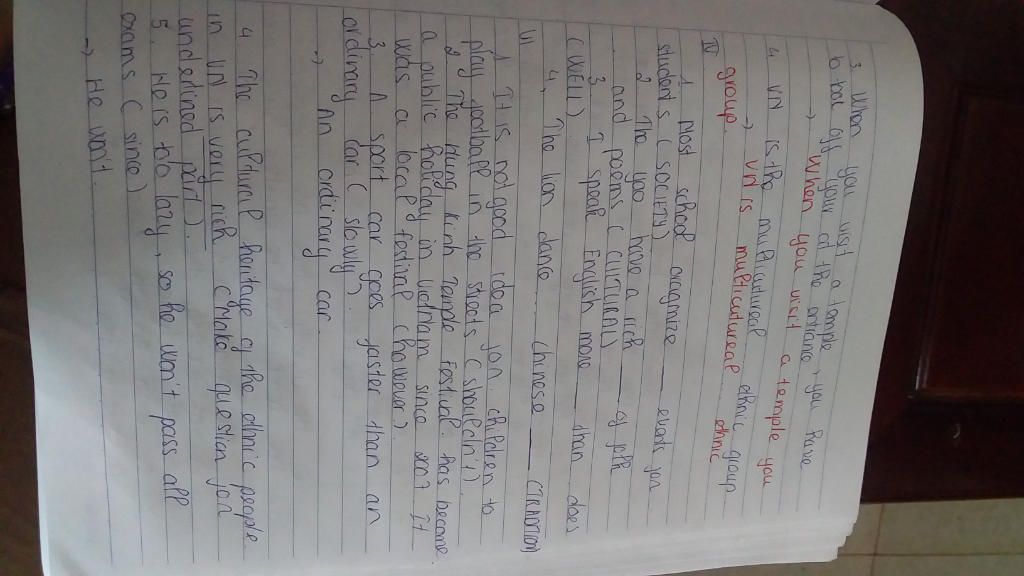 3. When you visit a temple, you have
to hat off your at the entrane, you have
→ When you visit a temple you
4. VN is the multicultureal ethnic group
→ VN is multicultureal ethnic
group.
IV
1 Most school oragnize ___ events for
students (SOCIETY)
2 The yao have a rich ___ of folk
and poems (CULTURAL)
3 I speak English more ___ than does
(WELL).
4, The lion dance ... chinese ___ (TRADITION)
VI
1 It is not good idea for children to
play football in the streets (shouldn't)
2 The Hung Kinh Temple Festival has become
a public holiday in vietnam since 2007 It
was a local festival (however).
3. A sport car goes faster than an
ordinary car (slowly)
→ An ordinary car.
4 The cultural heritage of the ethnic people
in VN is very rich (Make question for
underlined part).
5. He is too lazy, so he won't pass all
exams (since)
→ He won't.